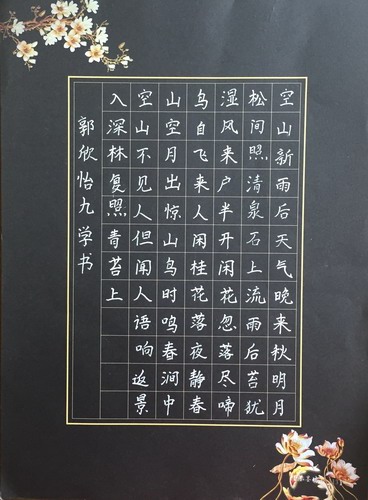 空山新雨后天气晚来秋明月
松间照清泉石上流雨后苔犹
湿风来户半开闲花忽落尽啼
鸟自飞来人闲桂花落夜静春
山空月出惊山鸟时鸣春涧中
空山不见人但闻人语响返景
入深林复照青苔上
郭欣怡九学书